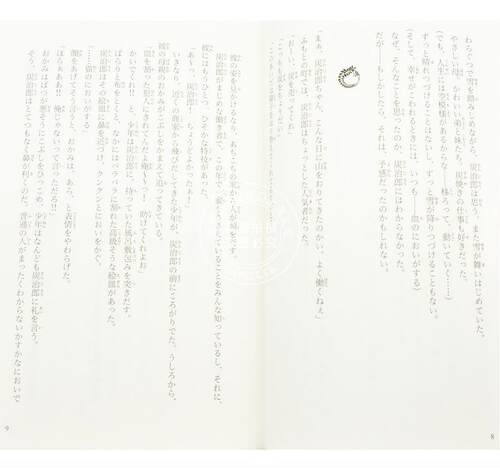 わらぐつで雪を踏みしめながら、炭治郎は空を見あげた。また雪が舞いはじめていた。
やさしい母、かわいい弟と妹たち。炭焼きの仕事も好きだった。
（でも、人生には空模様があるからな　移ろって、動いていく……）
ずっと晴れつづけることはないし、ずっと雪が降りつづけることもない。
（そして　幸せがこわれるときには、いつも――血のにおいがする）
なぜ、そんなことを思ったのか、炭治郎にはわからなかった。
だが――もしかしたら、それは、予感だったのかもしれない。
「まあ、炭治郎ちゃん、こんな日に山をおりてきたのかい。よく働くねぇ」
ふもとの町では、炭治郎はちょっとした人気者だった。
「おーい、炭を売ってくれ」
「こっちも」
彼の姿を見かけるなり、あちこちの家から人が姿をだす。
炭治郎がまじめな働き者で、この年で一家をささえていることをみんな知っているし、それに、
彼にはもうひとつ、ひそかな特技があった。
「あーっ、炭治郎！　ちょうどよかった！」
いきなり、近くの商家から飛びだしてきた少年が、炭治郎の前にころがりでた。うしろから、
彼の母親のおかみがこぶしをかまえて追ってきている。
「皿を割った犯人にされてんだよ俺〜〜っ！　助けてくれよお」
かいでくれ！！　と、少年は炭治郎に、持っていた風呂敷包みを突きだす。
ぱらりと布をとくと、なかにはバラバラに割れた高級そうな絵皿があった。
炭治郎はその絵皿に鼻を近づけ、クンクンとにおいをかぐ。
「……猫のにおいがする」
顔をあげてそう言うと、おかみは、あら、と表情をやわらげた。
「ほらぁあああ!!　俺じゃないって言っただろ!!」
おかみはばつが悪そうにこぶしをひっこめ、少年はなんども炭治郎に礼を言う。
そう、炭治郎はとてつもなく鼻が利くのだ。普通の人がまったくわからないかすかなにおいで
8
9